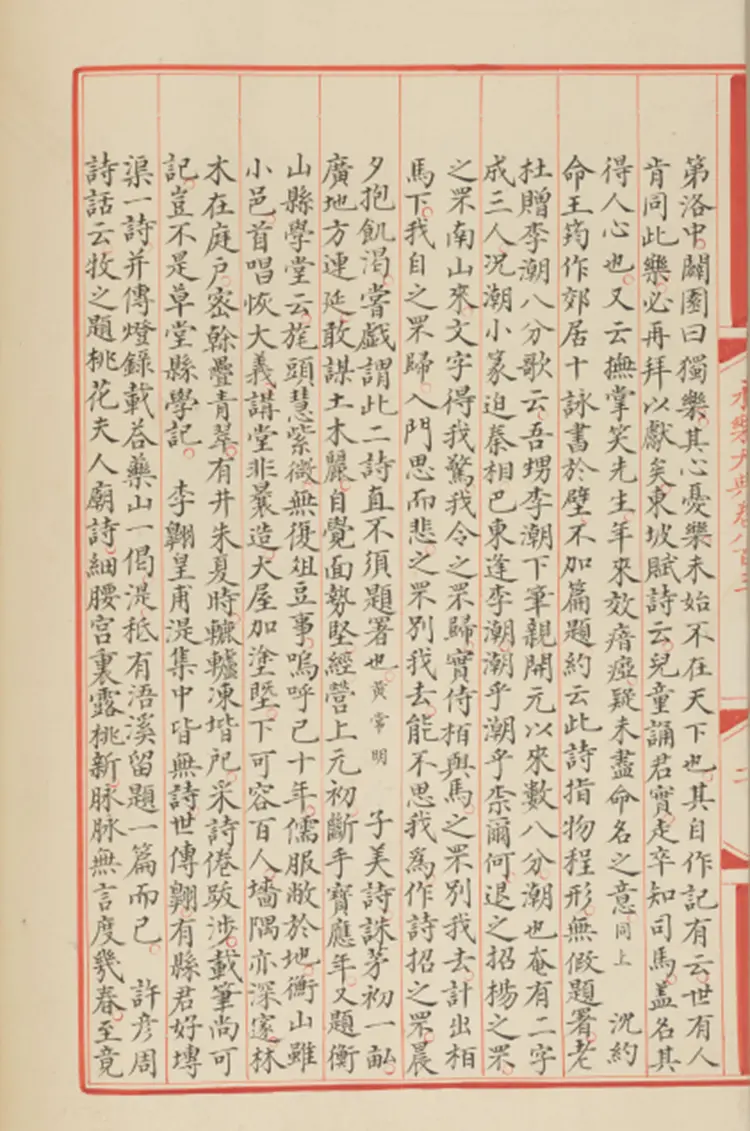 永樂大典卷八百三
二
第洛中闢園曰獨樂其心憂樂未始不在天下也其自作記有云世有人
肯同此樂必再拜以獻矣東坡賦詩云兒童誦君實走卒知司馬盖名其
得人心也又云撫掌笑先生年來效瘖瘂疑未盡命名之意同上 沉約
命王筠作郊居十詠書於壁不加篇題約云此詩指物程形無假題署老
杜贈李潮八分歌云吾甥李潮下筆親開元以來數八分潮也奄有二字
成三人况潮小篆迫秦相巴東逢李潮潮乎潮乎柰爾何退之招楊之罘
之罘南山來文字得我驚我令之罘歸實侍栢與馬之罘別我去計出栢
馬下我自之罘歸入門思而悲之罘別我去能不思我爲作詩招之罘晨
夕抱飢渴嘗戯謂此二詩直不須題署也黃常明 子美詩誅茅初一畝
廣地方連延敢謀土木麗自覺面勢堅經營上元初斷手寶應年又題衡
山縣學堂云旄頭慧紫微無復俎豆事嗚呼已十年儒服敝於地衡山雖
小邑首唱恢大義講堂非曩造大屋加塗墍下可容百人墻隅亦深邃林
木在庭戶密榦疊青翠有井朱夏時轆轤凍堦戺采詩倦跋涉載筆尚可
記豈不是草堂縣學記 李翺皇甫湜集中皆無詩世傳翺有縣君好塼
渠一詩并傳燈錄載荅藥山一偈湜秪有浯溪留題一篇而已 許彥周
詩話云牧之題桃花夫人廟詩細腰宮裏露桃新脉脉無言度幾春至竟